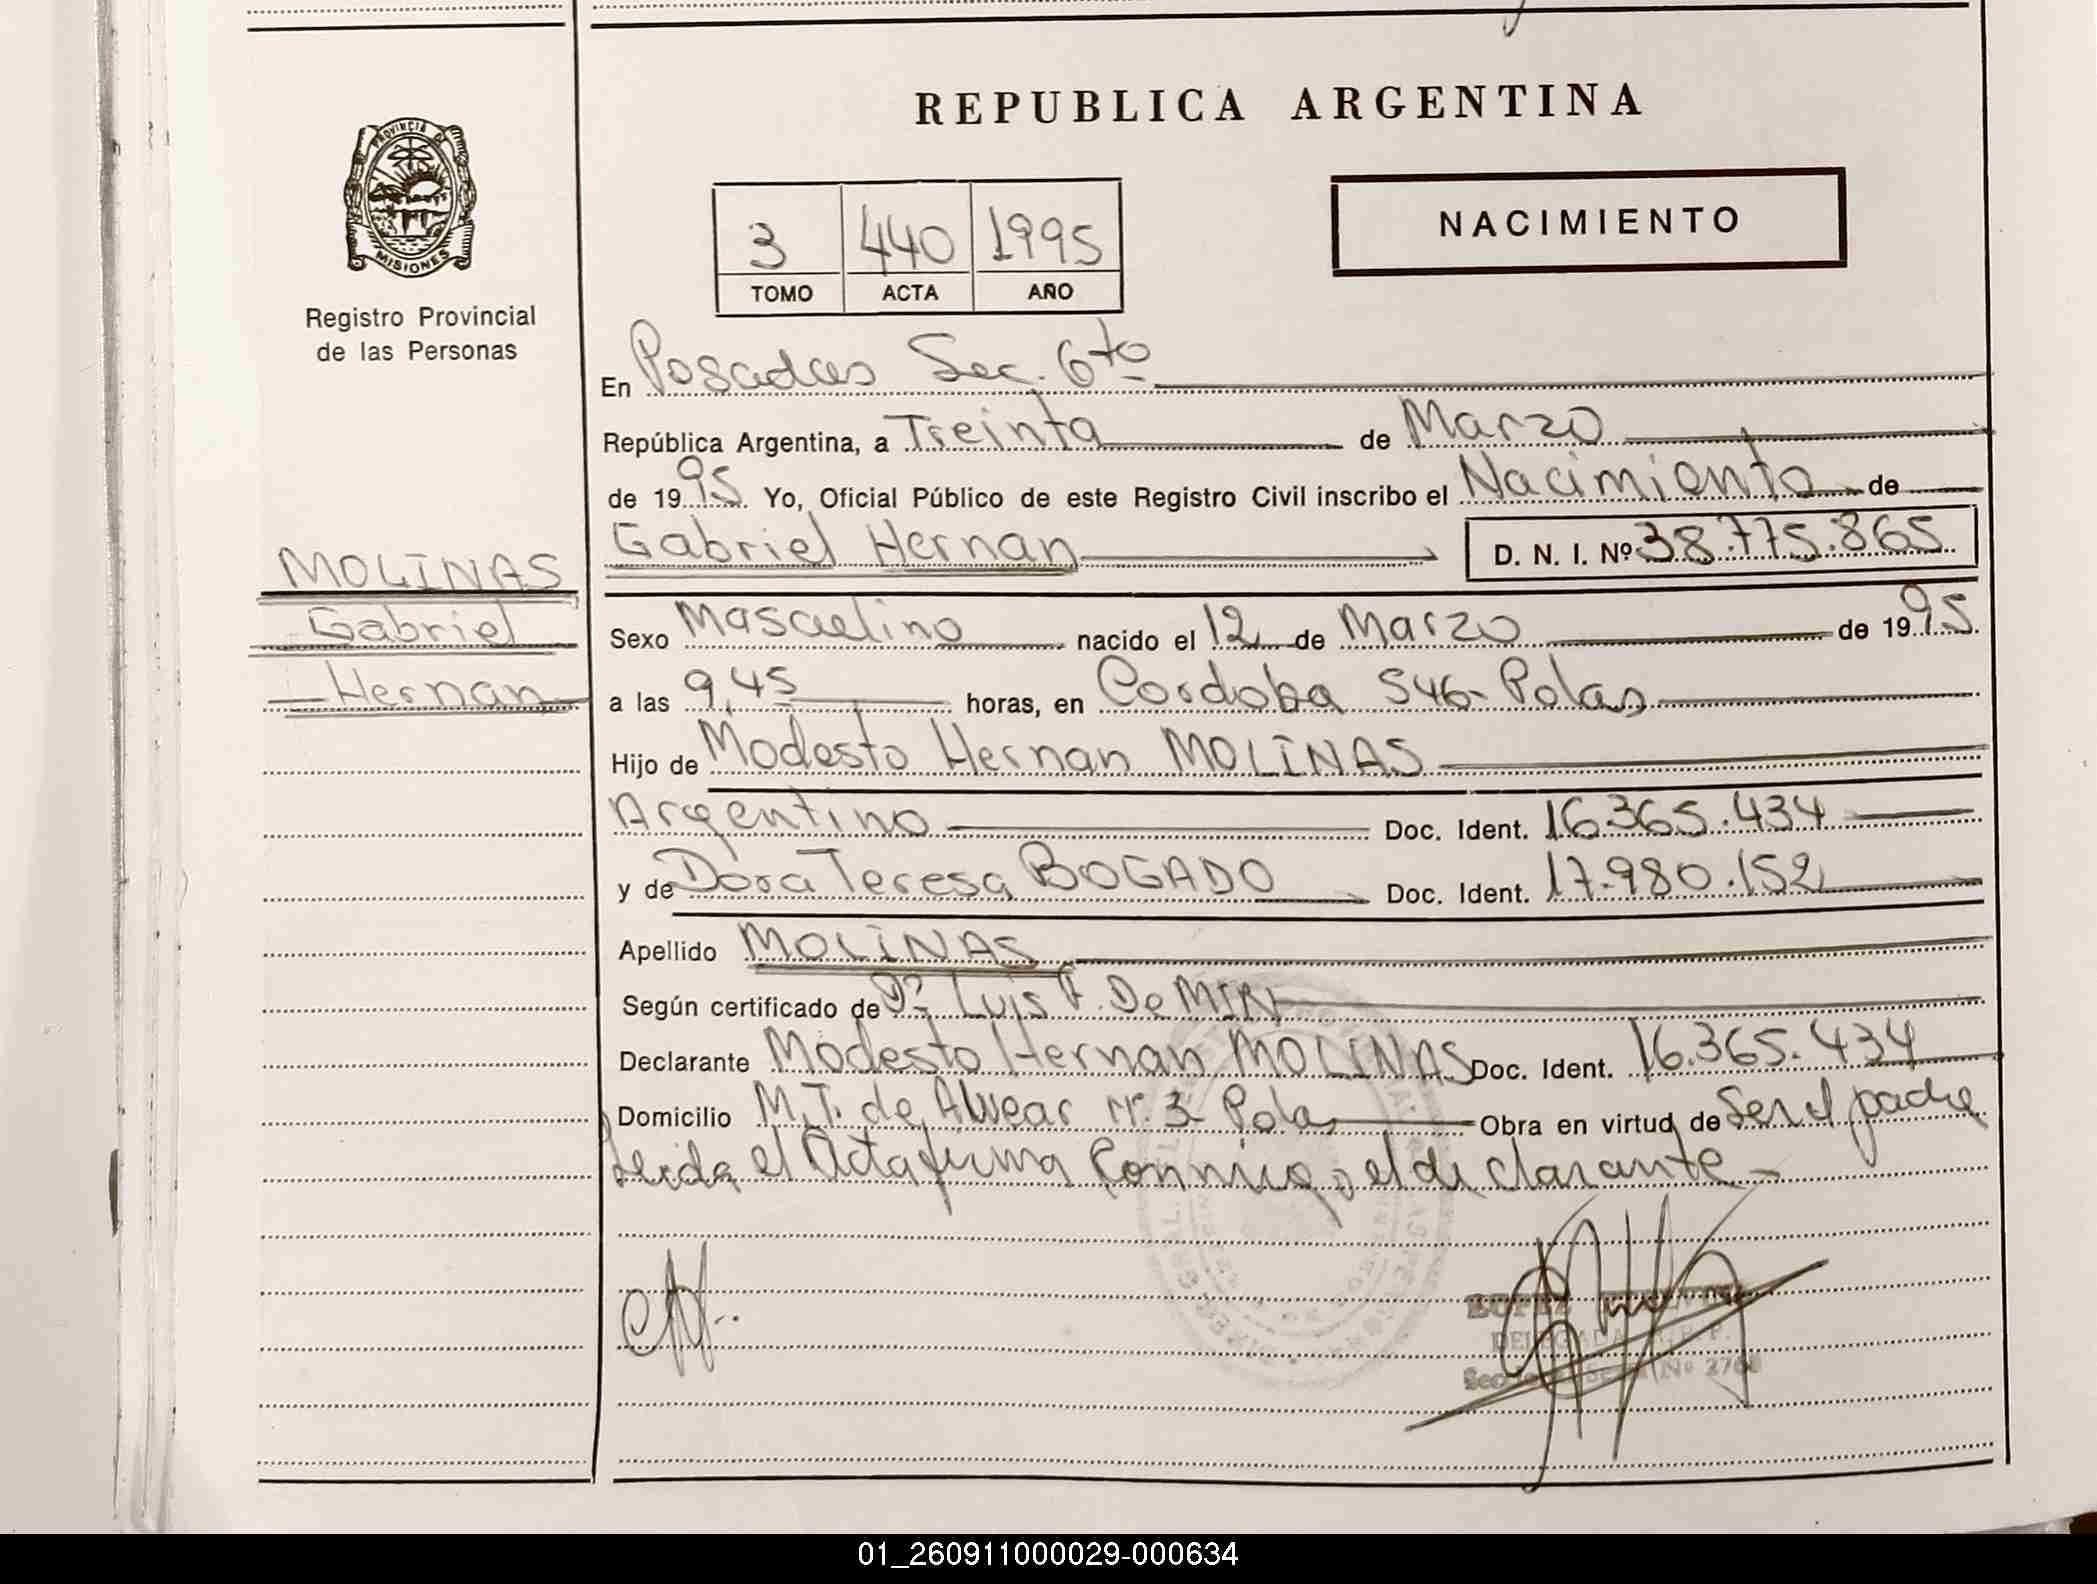 REPUBLICA ARGENTINA
PROVINCIA DE
MISIONES
Registro Provincial
de las Personas
3 440 1995
TOMO ACTA AÑO
NACIMIENTO
En Posadas Sec. 6to
República Argentina, a Treinta de Marzo
de 1995 Yo, Oficial Público de este Registro Civil inscribo el Nacimiento de
MOLINAS
Gabriel
Hernan
Gabriel Hernan D. N. I. Nº 38.775.865
Sexo Masculino nacido el 12 de Marzo de 1995.
a las 9,45 horas, en Cordoba 546- Pdas
Hijo de Modesto Hernan MOLINAS
Argentino Doc. Ident. 16.365.434
y de Dora Teresa BOGADO Doc. Ident. 17.980.152
Apellido MOLINAS
Según certificado de Dr. Luis F. De MIN
Declarante Modesto Hernan MOLINAS Doc. Ident. 16.365.434
Domicilio M.T. de Alvear Nº. 3- Pdas Obra en virtud de Ser el padre
Leida el Acta firma Conmigo, el declarante
DELEGADA R.P.P.
Nº 276
01_260911000029-000634